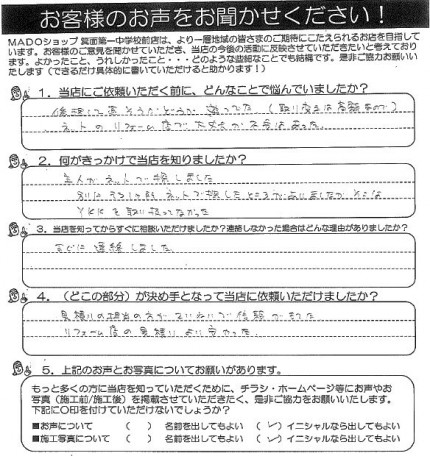 お客様のお声をお聞かせください！
MADOショップ 箕面第一中学校前店は、より一層地域の皆さまのご期待にこたえられるお店を目指して
います。お客様のご意見を聞かせていただき、当店の今後の活動に反映させていただきたいと考えており
ます。よかったこと、うれしかったこと・・・どのような些細なことでも結構です。是非ご協力お願いい
たします（できるだけ具体的に書いていただけると助かります！）
1．当店にご依頼いただく前に、どんなことで悩んでいましたか？
ネットのリフォーム店で大丈夫か不安はあった。
2．何がきっかけで当店を知りましたか？
主人がネットで探しました
YKKを取り扱ってなかった
3．当店を知ってからすぐに相談いただけましたか？連絡しなかった場合はどんな理由がありましたか？
すぐに連絡しました
4．（どこの部分）が決め手となって当店に依頼いただけましたか？
見積りの担当の方がていねいで信頼できた
リフォーム店の見積りより安かった。
5．上記のお声とお写真についてお願いがあります。
もっと多くの方に当店を知っていただくために、チラシ・ホームページ等にお声やお
写真（施工前/施工後）を掲載させていただきたく、是非ご協力をお願いいたします。
下記に〇印を付けていただけないでしょうか？
■お声について （ ） 名前を出してもよい （✓）イニシャルなら出してもよい
■施工写真について （ ） 名前を出してもよい （✓）イニシャルなら出してもよい